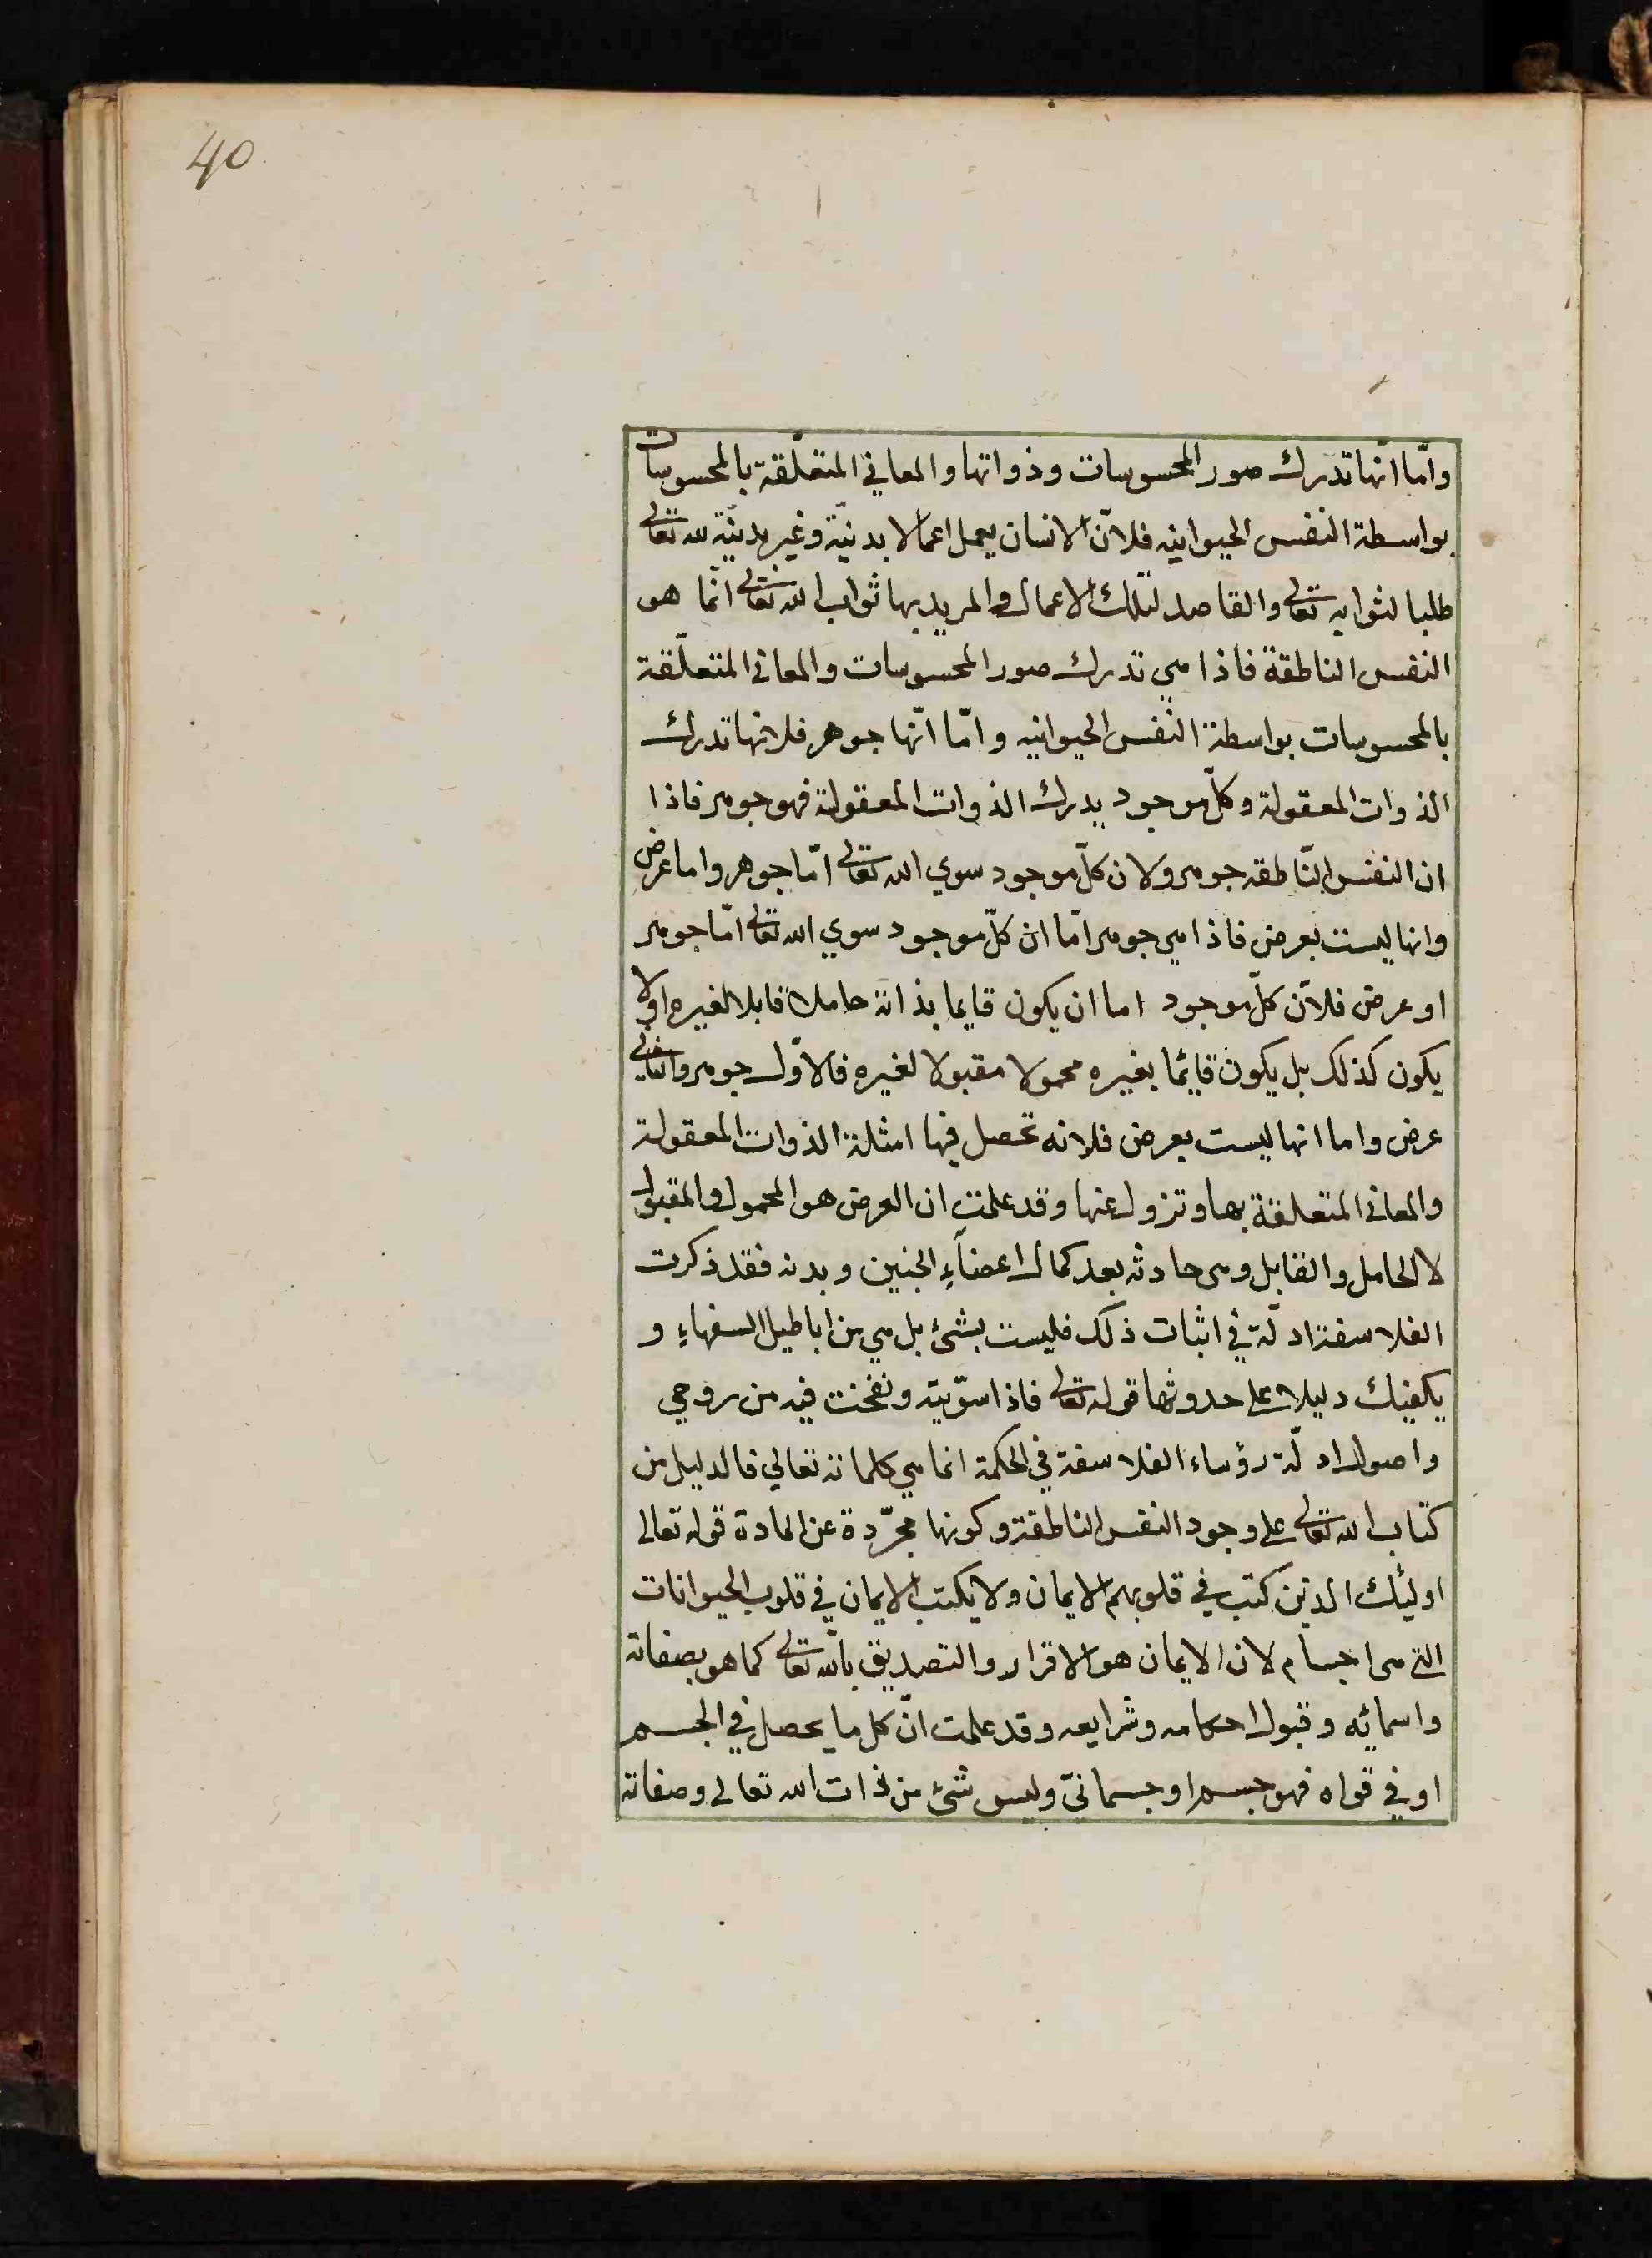 40
وامّا انّها تدرك صور المحسوسات وذواتها والمعاني المتعلّقة بالمحسوسات
بواسطة النفس الحيوانيه فلانّ الانسان يعمل اعمالا بدنيّة وغير بدنيّة لله تعالى
طلبا لثوابه تعالى والقاصد لتلك الاعمال والمريد بها ثواب الله تعالى انّما هو
النفس الناطقة فاذا هي تدرك صور المحسوسات والمعاني المتعلّقة
بالمحسوسات بواسطة النفس الحيوانيه وامّا انّها جوهر فلانها تدرك
الذوات المعقولة وكلّ موجود يدرك الذوات المعقولة فهو جوهر فاذا
ان النفس النّاطقه جوهر ولان كلّ موجود سوي الله تعالى امّا جوهر واما عرض
وانها ليست بعرض فاذا هي جوهر امّا ان كلّ موجود سوي الله تعالى امّا جوهر
او عرض فلانّ كلّ موجود اما ان يكون قايما بذاته حاملا قابلا لغيره او لا
يكون كذلك بل يكون قايمًا بغيره محمولا مقبولا لغيره فالاوّل جوهر والثاني
عرض واما انها ليست بعرض فلانه تحصل فيها امثلة الذوات المعقولة
والمعاني المتعلقة بها وتزول عنها وقد علمت ان العرض هو المحمول والمقبول
لا الحامل والقابل وهي حادثه بعد كمال اعضآءِ الجنين وبدنه فقد ذكرت
الفلاسفة ادلّة في اثبات ذلك فليست بشئ بل هي من اباطيل السفهاءِ و
يكفيك دليلا على حدوثها قوله تعالى فاذا سوّيته ونفخت فيه من روحي
واصول ادلّة رؤساء الفلاسفة في الحكمة انما هي كلماته تعالي فالدليل من
كتاب الله تعالى على وجود النفس الناطقة وكونها مجرّدة عن المادة قوله تعالى
اولئك الذين كتب في قلوبهم الايمان ولا يكتب الايمان في قلوب الحيوانات
التي هي اجسام لان الايمان هو الاقرار والتصديق بالله تعالى كما هو بصفاته
واسمائه وقبول احكامه وشرايعه وقد علمت انّ كل ما يحصل في الجسم
او في قواه فهو جسم او جسمانيّ وليس شئ من ذات الله تعالى وصفاته